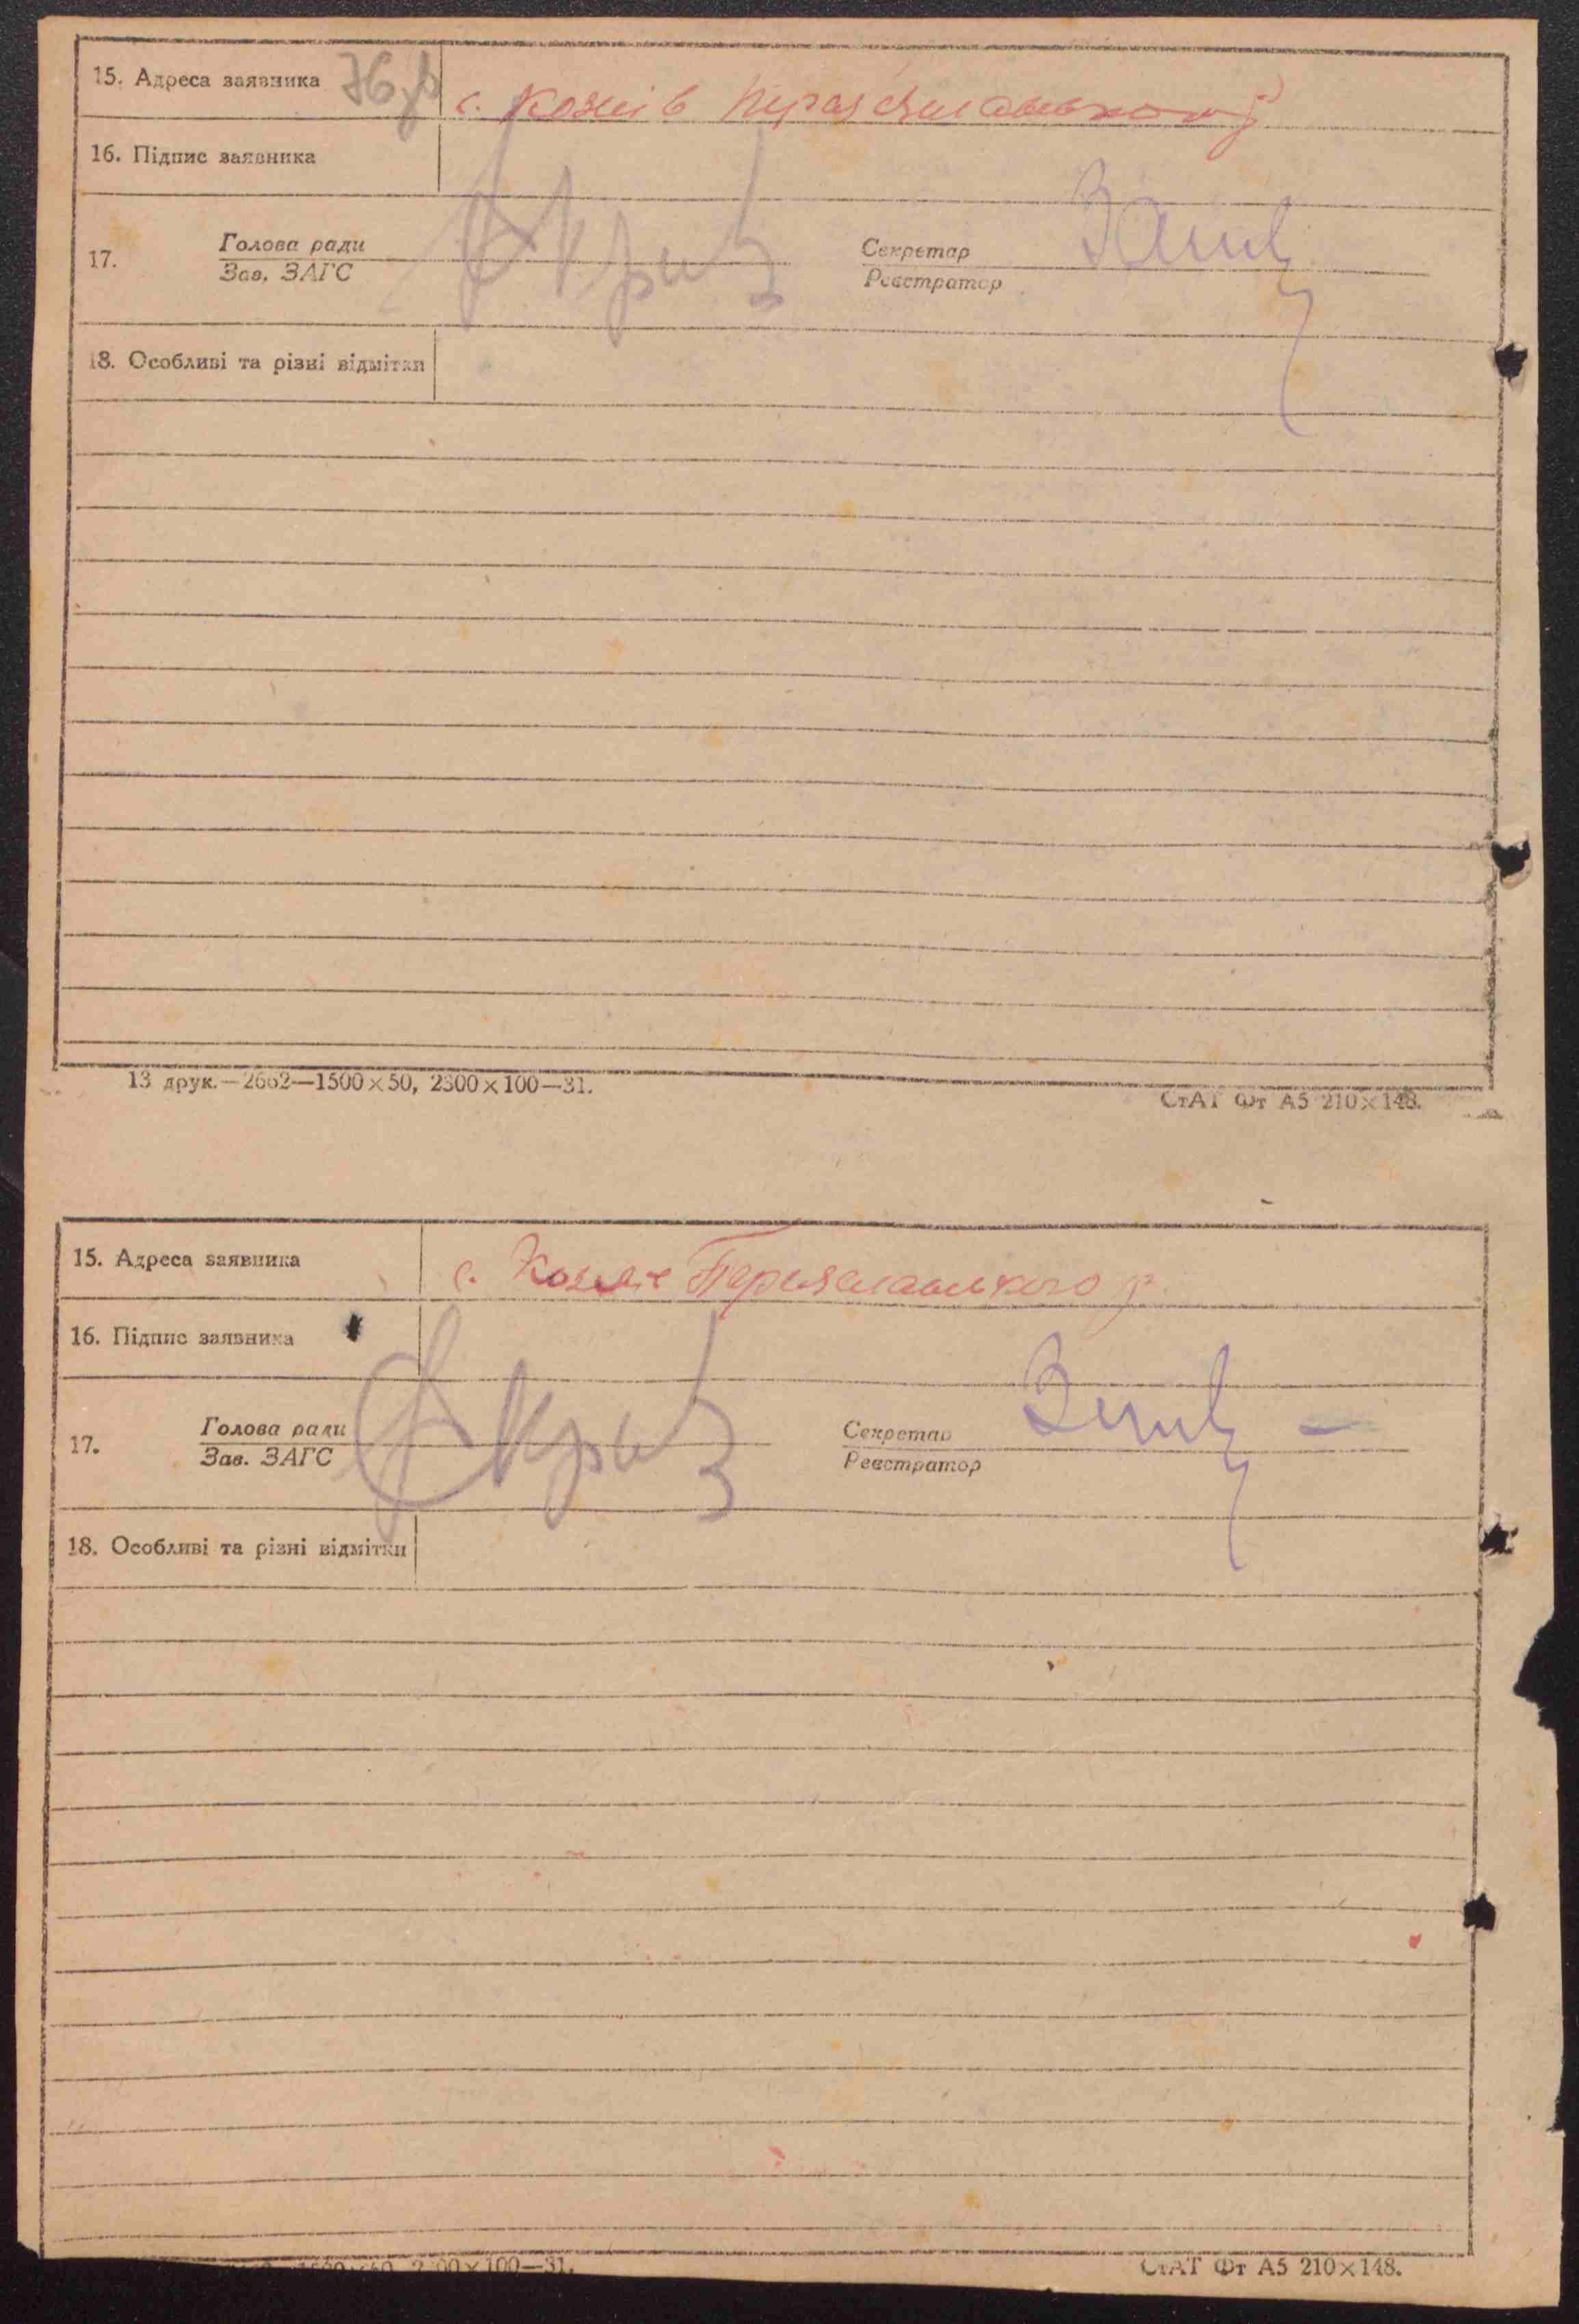 15. Адреса заявника 76 зв с. Козлів Переяславського р
16. Підпис заявника
17. Голова ради Секретар
Зав. ЗАГС Реєстратор
18. Особливі та різні відмітки
13 друк.—2662—1500×50, 2300×100—31. СтАТ Фт А5 210×148.
15. Адреса заявника с. Козлів Переяславського р.
16. Підпис заявника
17. Голова ради Секретар
Зав. ЗАГС Реєстратор
18. Особливі та різні відмітки
00×100—31. СтАТ Фт А5 210×148.